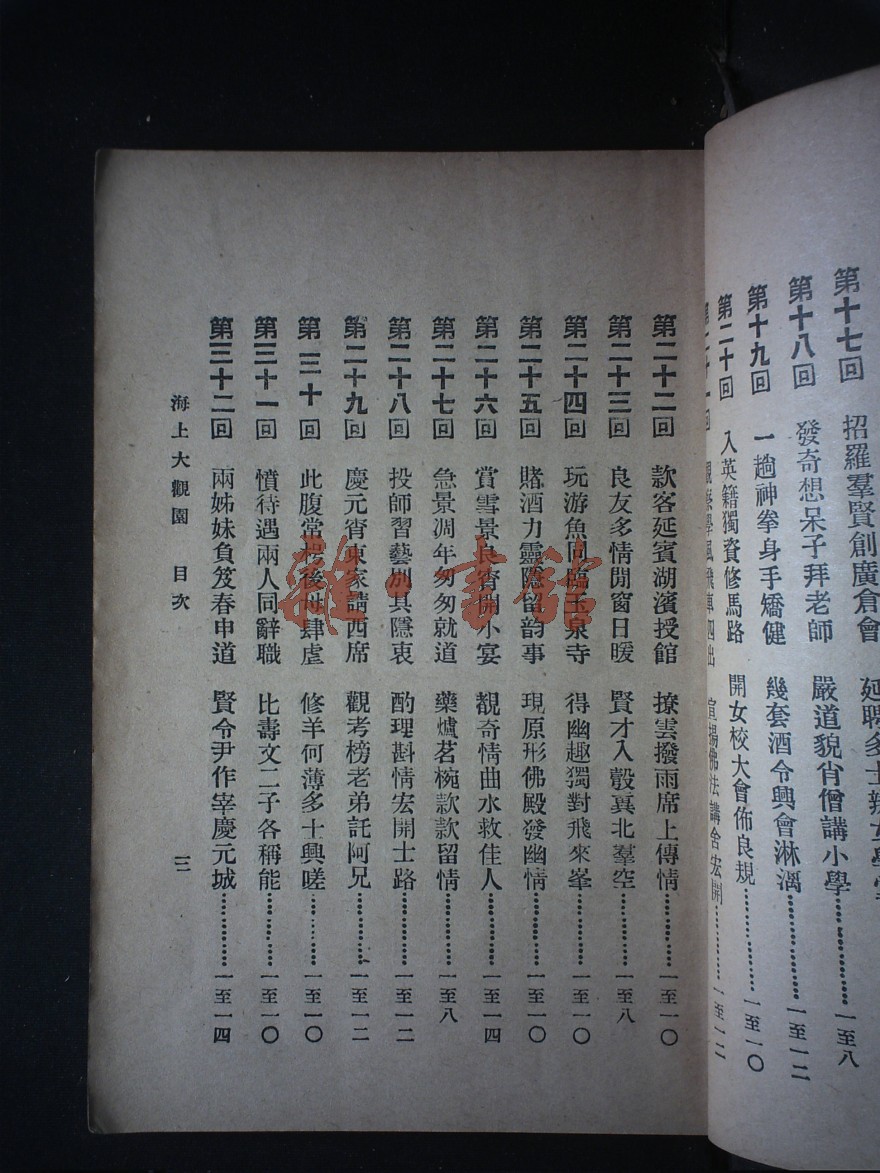 第十七回 招羅羣賢創廣倉會 延聘多士辦女學堂
第十八回 發奇想呆子拜老師 嚴道貌肖僧講小學………………一至八
第十九回 一趟神拳身手矯健 幾套酒令興會淋漓………………一至一二
第二十回 入英籍獨資修馬路 開女校大會佈良規………………一至一〇
第二十一回 觀察學風飛車四出 宣揚佛法講舍宏開………………一至一二
第二十二回 款客延賓湖濱授館 撩雲撥雨席上傳情………………一至一〇
第二十三回 良友多情閒窗日暖 賢才入彀冀北羣空………………一至八
第二十四回 玩游魚同臨玉泉寺 得幽趣獨對飛來峯………………一至一〇
第二十五回 賭酒力靈隱留韵事 現原形佛殿發幽情………………一至一〇
第二十六回 賞雪景良宵開小宴 靚奇情曲水救佳人………………一至一四
第二十七回 急景凋年匆匆就道 藥爐茗椀款款留情………………一至八
第二十八回 投師習藝別具隱衷 酌理斟情宏開士路………………一至一二
第二十九回 慶元宵東家請西席 觀考榜老弟託阿兄………………一至一二
第三十回 此腹常枵後母肆虐 修羊何薄多士興嗟………………一至一〇
第三十一回 憤待遇兩人同辭職 比壽文二子各稱能………………一至一〇
第三十二回 兩姊妹負笈春申道 賢令尹作宰慶元城………………一至一四
海上大觀園 目次 三
雜·書館